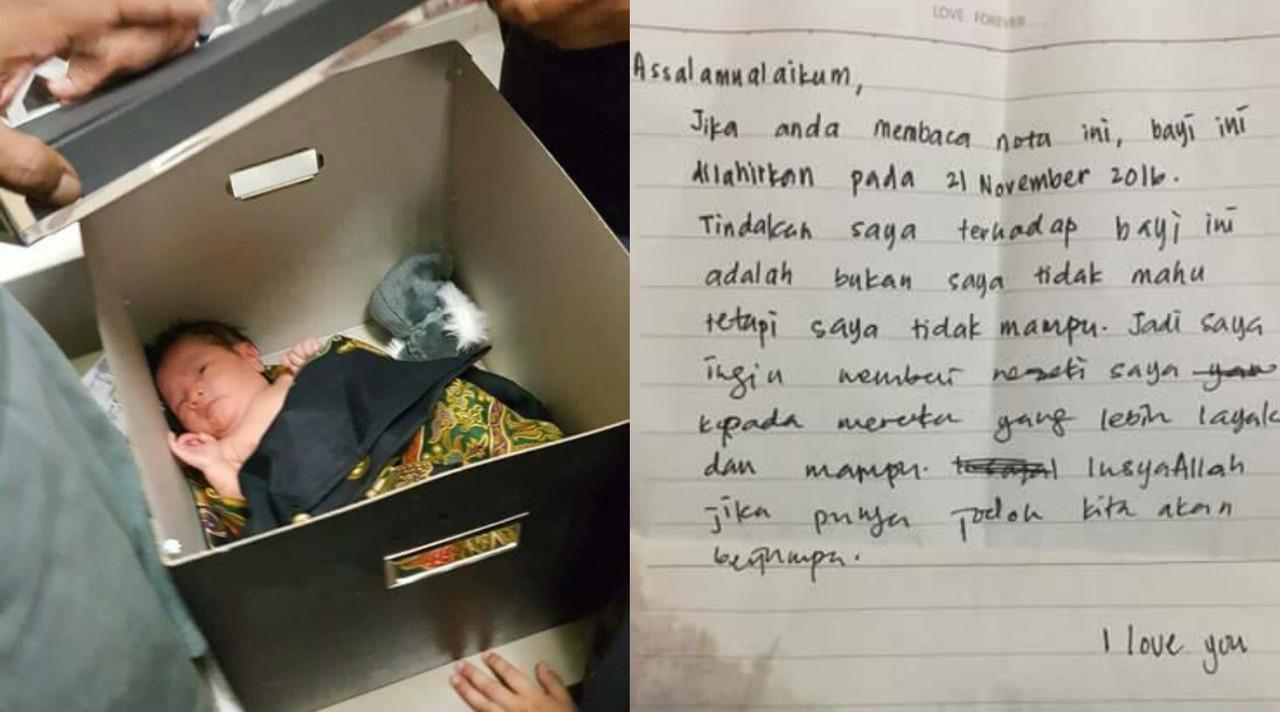 LOVE FOREVER...
Assalamualaikum,
Jika anda membaca nota ini, bayi ini
dilahirkan pada 21 November 2016.
Tindakan saya terhadap bayi ini
adalah bukan saya tidak mahu
tetapi saya tidak mampu. Jadi saya
ingin memberi rezeki saya
kepada mereka yang lebih layak
dan mampu. InsyaAllah
jika punya jodoh kita akan
berjumpa.
I love you